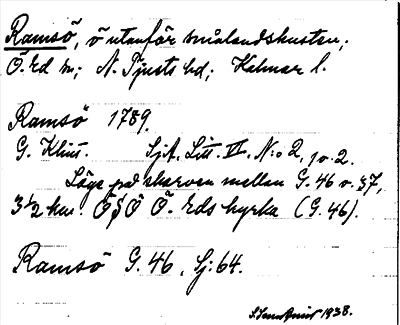 Ramsö, ö utanför smålandskusten;
Ö. Ed sn; N. Tjusts hd; Kalmar l.
Ramsö 1789.
G. Klint. SjA. Litt. VI. N:o 2, 1 o. 2.
Läge på skarven mellan G. 46 o. 37,
3½ km. ÖSÖ Ö. Eds kyrka (G. 46).
Ramsö G. 46, Sj: 64.
1938.